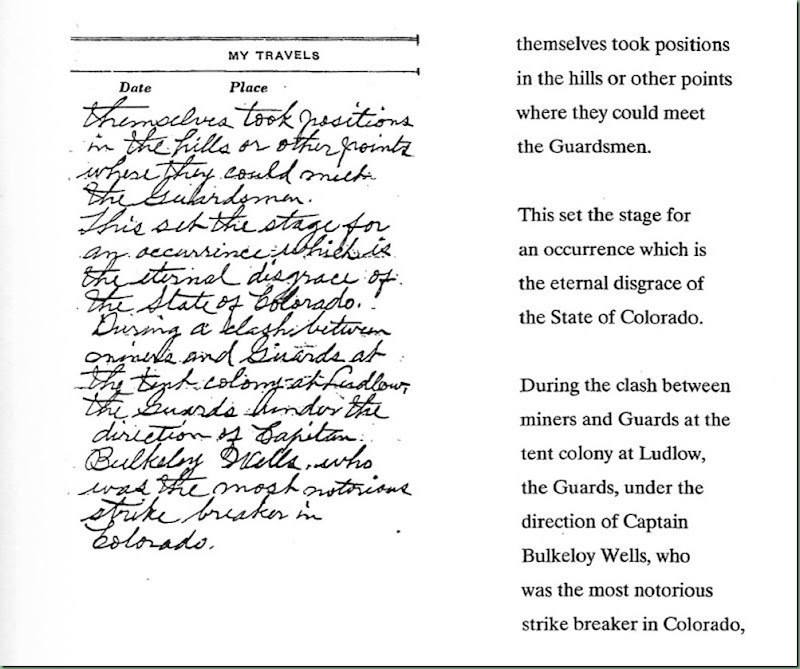 MY TRAVELS
Date Place
themselves took positions
in the hills or other points
where they could meet
the Guardsmen.
This set the stage for
an occurrince which is
the eternal disgrace of
the State of Colorado.
During a clash between
miners and Guards at
the tent colony at Ludlow,
the Guards under the
direction of Capitan
Bulkeloy Wells, who
was the most notorious
strike breaker in
Colorado.
themselves took positions
in the hills or other points
where they could meet
the Guardsmen.
This set the stage for
an occurrence which is
the eternal disgrace of
the State of Colorado.
During the clash between
miners and Guards at the
tent colony at Ludlow,
the Guards, under the
direction of Captain
Bulkeloy Wells, who
was the most notorious
strike breaker in Colorado,